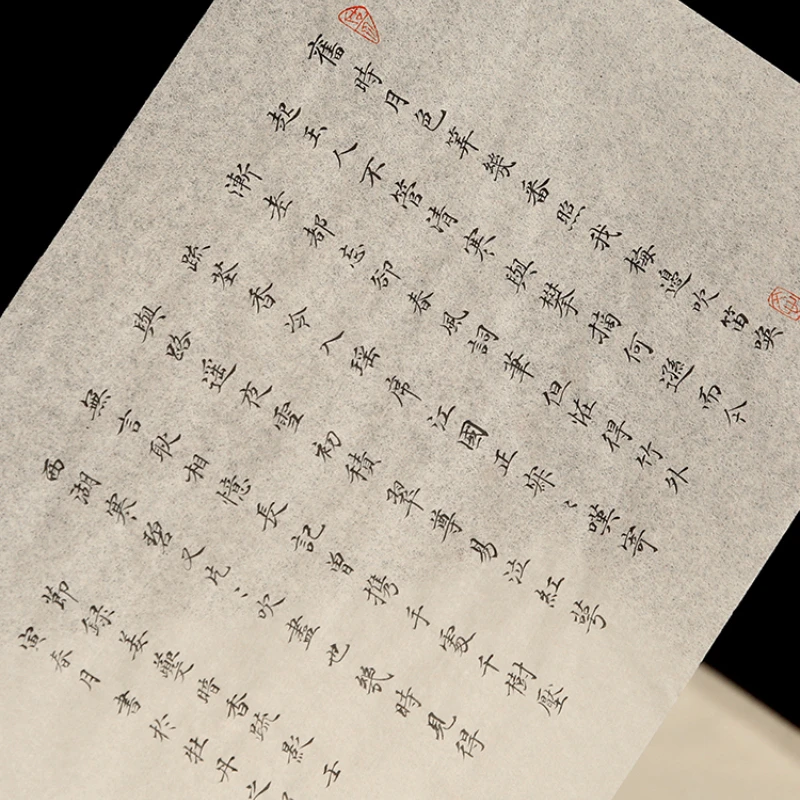 舊時月色筭幾番照我梅邊吹笛喚
起玉人不管清寒與攀摘何遜而今
漸老都忘卻春風詞筆但恠得竹外
踈花香冷入瑤席江國正寂〻嘆寄
與路遥夜雪初積翠尊易泣紅萼
無言耿相憶長記曾携手處千樹壓
西湖寒碧又片〻吹盡也幾時見得
節録姜夔暗香踈影壬
寅春月書於牡丹之